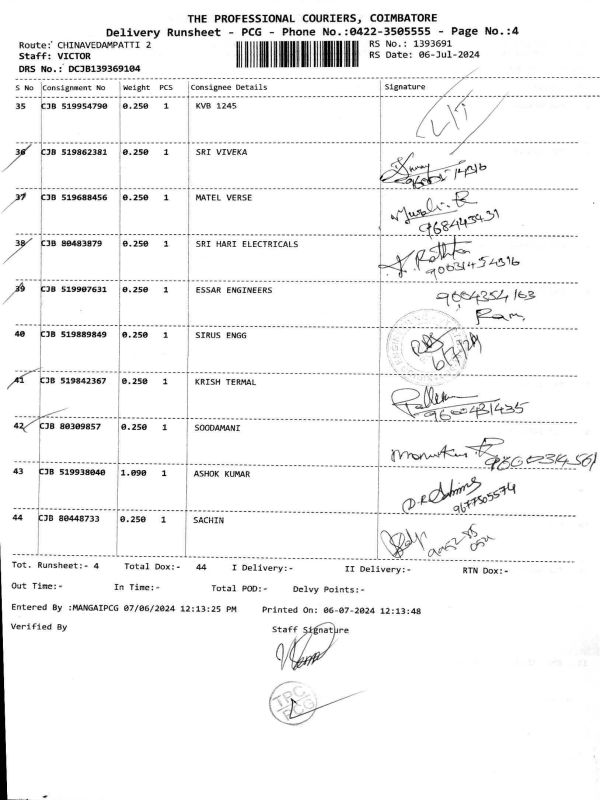 THE PROFESSIONAL COURIERS, COIMBATORE
Delivery Runsheet - PCG - Phone No.:0422-3505555 - Page No.:4
Route: CHINAVEDAMPATTI 2
RS No.: 1393691
Staff: VICTOR
RS Date: 06-Jul-2024
DRS No.: DCJB139369104
S No Consignment No Weight PCS Consignee Details Signature
35 CJB 519954790 0.250 1 KVB 1245
36 CJB 519862381 0.250 1 SRI VIVEKA
37 CJB 519688456 0.250 1 MATEL VERSE
Murali. R
968443431
38 CJB 80483879 0.250 1 SRI HARI ELECTRICALS
39 CJB 519907631 0.250 1 ESSAR ENGINEERS
Ram
40 CJB 519889849 0.250 1 SIRUS ENGG
6/7/24
41 CJB 519842367 0.250 1 KRISH TERMAL
9600431435
42 CJB 80309857 0.250 1 SOODAMANI
43 CJB 519938040 1.090 1 ASHOK KUMAR
9677505574
44 CJB 80448733 0.250 1 SACHIN
Tot. Runsheet:- 4 Total Dox:- 44 I Delivery:- II Delivery:- RTN Dox:-
Out Time:- In Time:- Total POD:- Delvy Points:-
Entered By :MANGAIPCG 07/06/2024 12:13:25 PM Printed On: 06-07-2024 12:13:48
Verified By Staff Signature
TPC
PCG